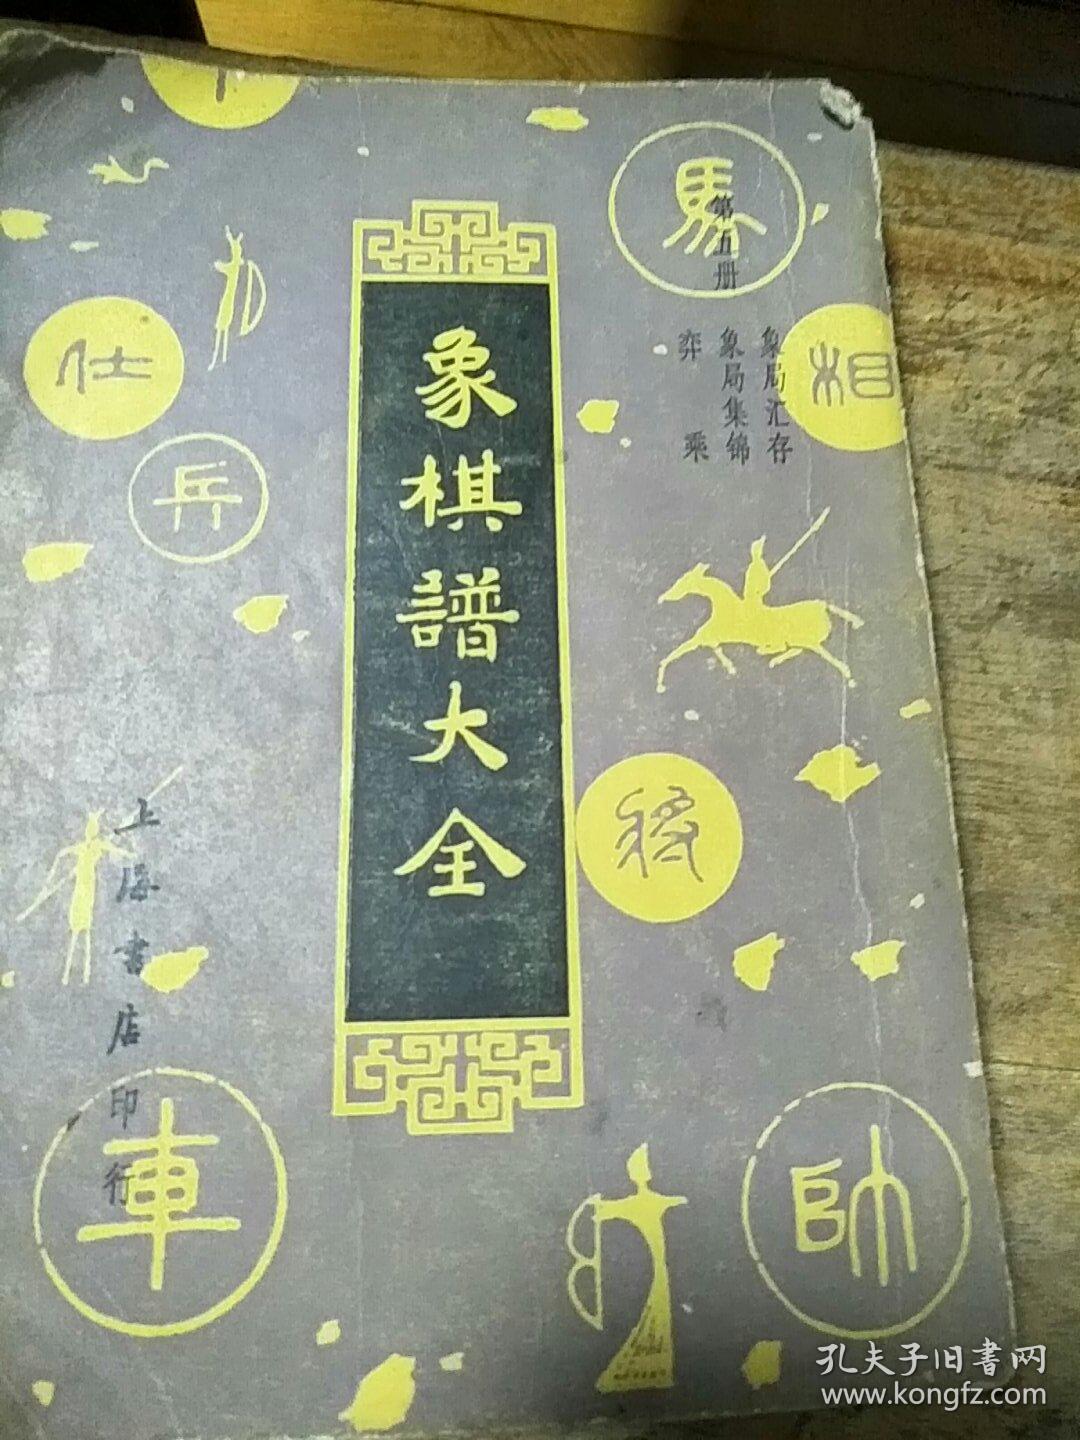 第五册
象局汇存
象局集锦
弈乘
象棋譜大全
上海书店印行
馬
相
仕
兵
将
車
帥
孔夫子旧書网
www.kongfz.com